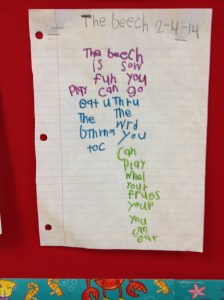 The beech 2-4-14
The beech
is sow
fuh you
Play can go
eat u Thru
The The
wrd
you
toc
can
Play
whel
your
your
you
can
eat